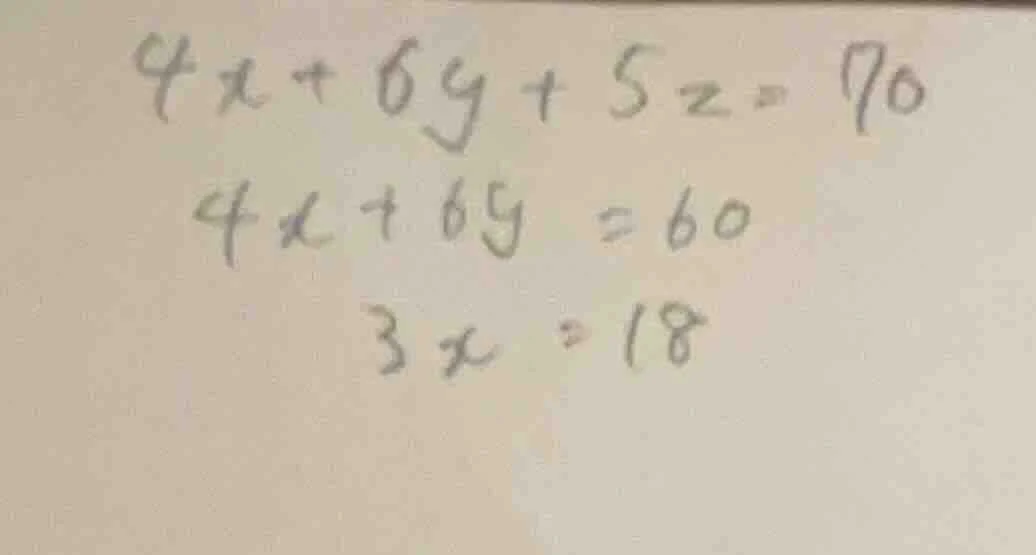 4x+6y+5z=70
4x+6y=60
3x=18